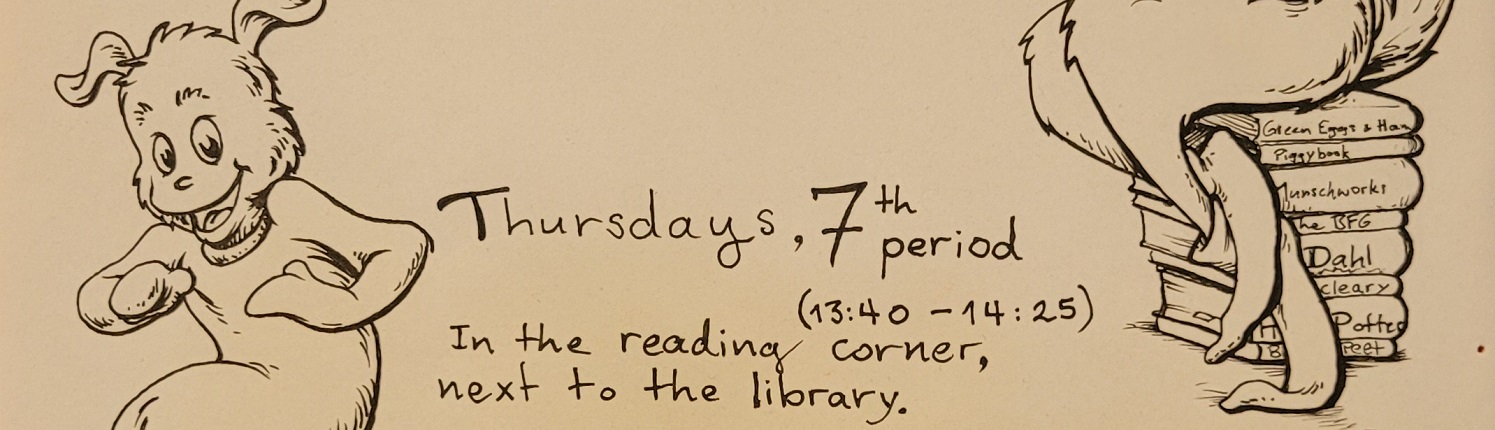 Thursdays, 7th period
(13:40 - 14:25)
In the reading corner,
next to the library.
Green Eggs & Ham
Piggybook
Munschworks
The BFG
Dahl
Cleary
H Potter
B Peet